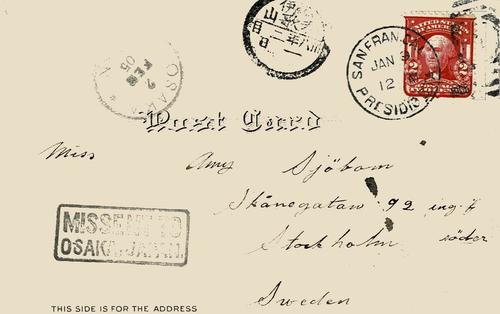 OSAKA
2
FEB
05
SAN FRAN
JAN
12
PRESIDIO
UNITED STATES
2 2
Post Card
Miss Amy Sjöbom
Skånegatan 92 ing. 
Stockholm söder
MISSENT TO
OSAKA, JAPAN.
Sweden
THIS SIDE IS FOR THE ADDRESS